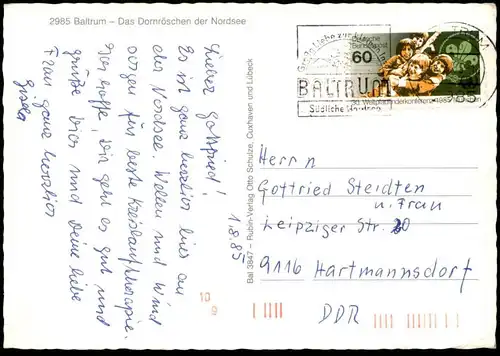 2985 Baltrum – Das Dornröschen der Nordsee
1.8.85
Lieber Gottfried!
Es ist ganz herrlich hier an
der Nordsee. Wellen und Wind
sorgen für beste Kreislauftherapie.
Ich hoffe, Dir geht es gut und
grüße Dich und Deine liebe
Frau ganz herzlich
Gisela
Bal 3847 – Rubin-Verlag Otto Schulze, Cuxhaven und Lübeck
Deutsche
Bundespost
60
BALTRUM
30. Weltpfadfinderkonferenz 1985 München
Herrn
Gottfried Steidten
u. Frau
Leipziger Str. 20
9116 Hartmannsdorf
DDR
10
9